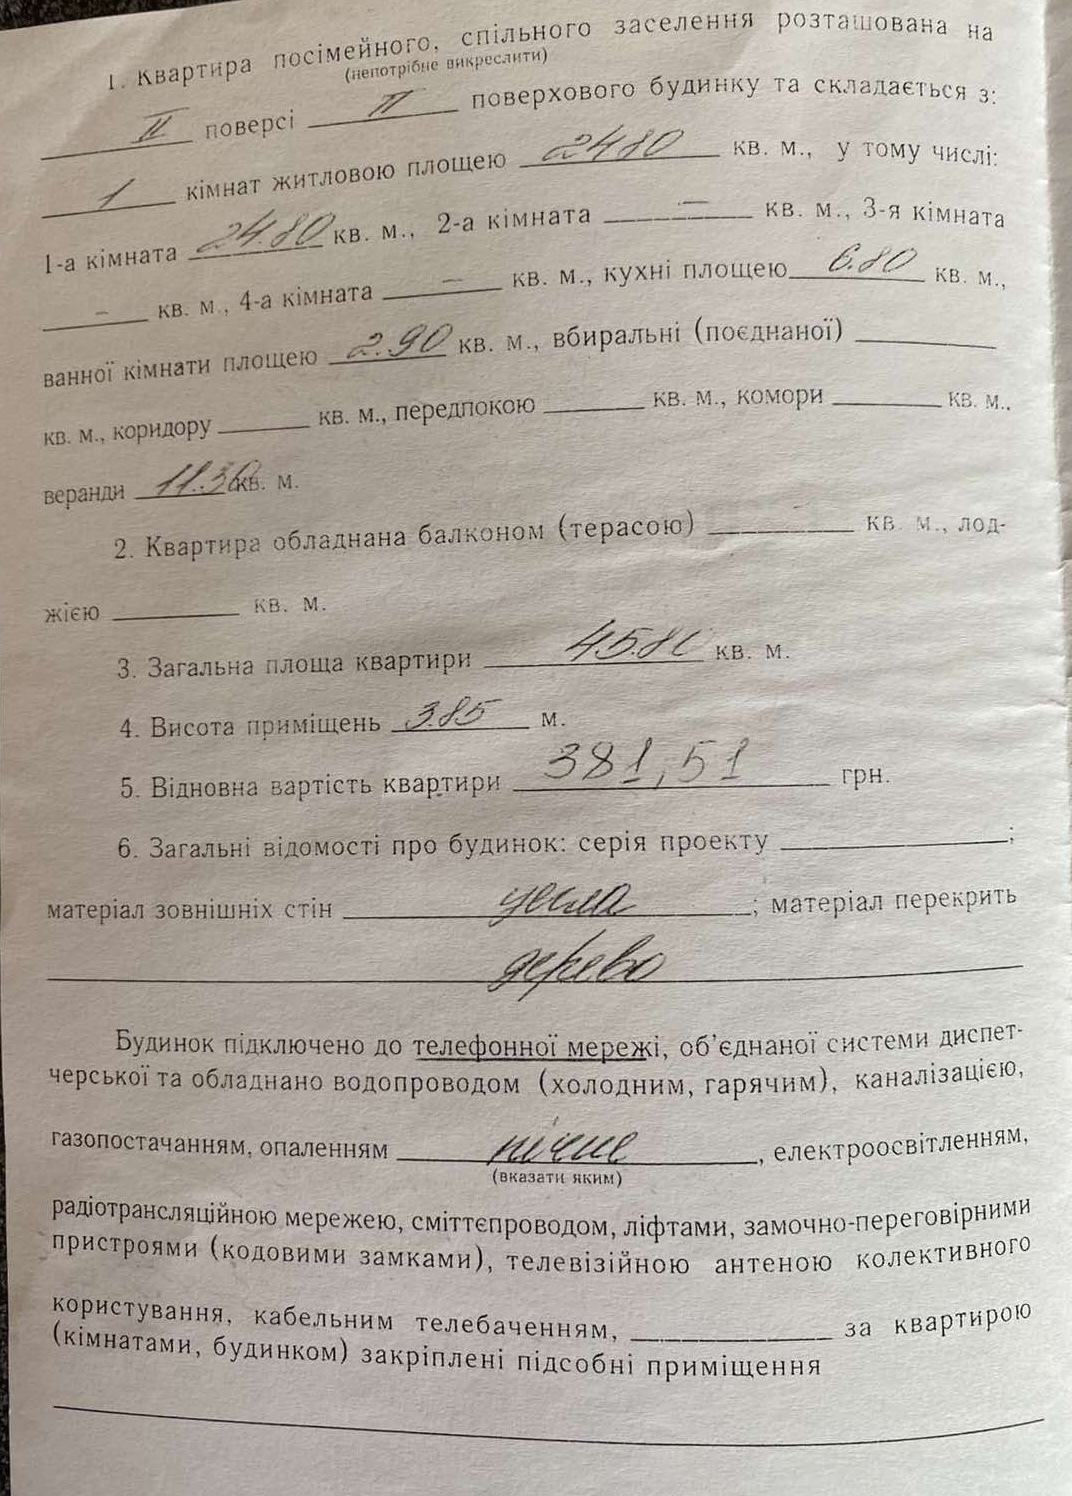 1. Квартира посімейного, спільного заселення розташована на
(непотрібне викреслити)
II поверсі II поверхового будинку та складається з:
1 кімнат житловою площею 24.80 кв. м., у тому числі:
1-а кімната 24.80 кв. м., 2-а кімната — кв. м., 3-я кімната
– кв. м., 4-а кімната — кв. м., кухні площею 6.80 кв. м.,
ванної кімнати площею 2.90 кв. м., вбиральні (поєднаної)
кв. м., коридору кв. м., передпокою кв. м., комори кв. м.,
веранди 11.30 кв. м.
2. Квартира обладнана балконом (терасою) кв. м., лод-
жією кв. м.
3. Загальна площа квартири 45.80 кв. м.
4. Висота приміщень 3.85 м.
5. Відновна вартість квартири 381,51 грн.
6. Загальні відомості про будинок: серія проекту ;
матеріал зовнішніх стін цегла ; матеріал перекрить
дерево
Будинок підключено до телефонної мережі, об'єднаної системи диспет-
черської та обладнано водопроводом (холодним, гарячим), каналізацією,
газопостачанням, опаленням пічне , електроосвітленням,
(вказати яким)
радіотрансляційною мережею, сміттєпроводом, ліфтами, замочно-переговірними
пристроями (кодовими замками), телевізійною антеною колективного
користування, кабельним телебаченням, за квартирою
(кімнатами, будинком) закріплені підсобні приміщення